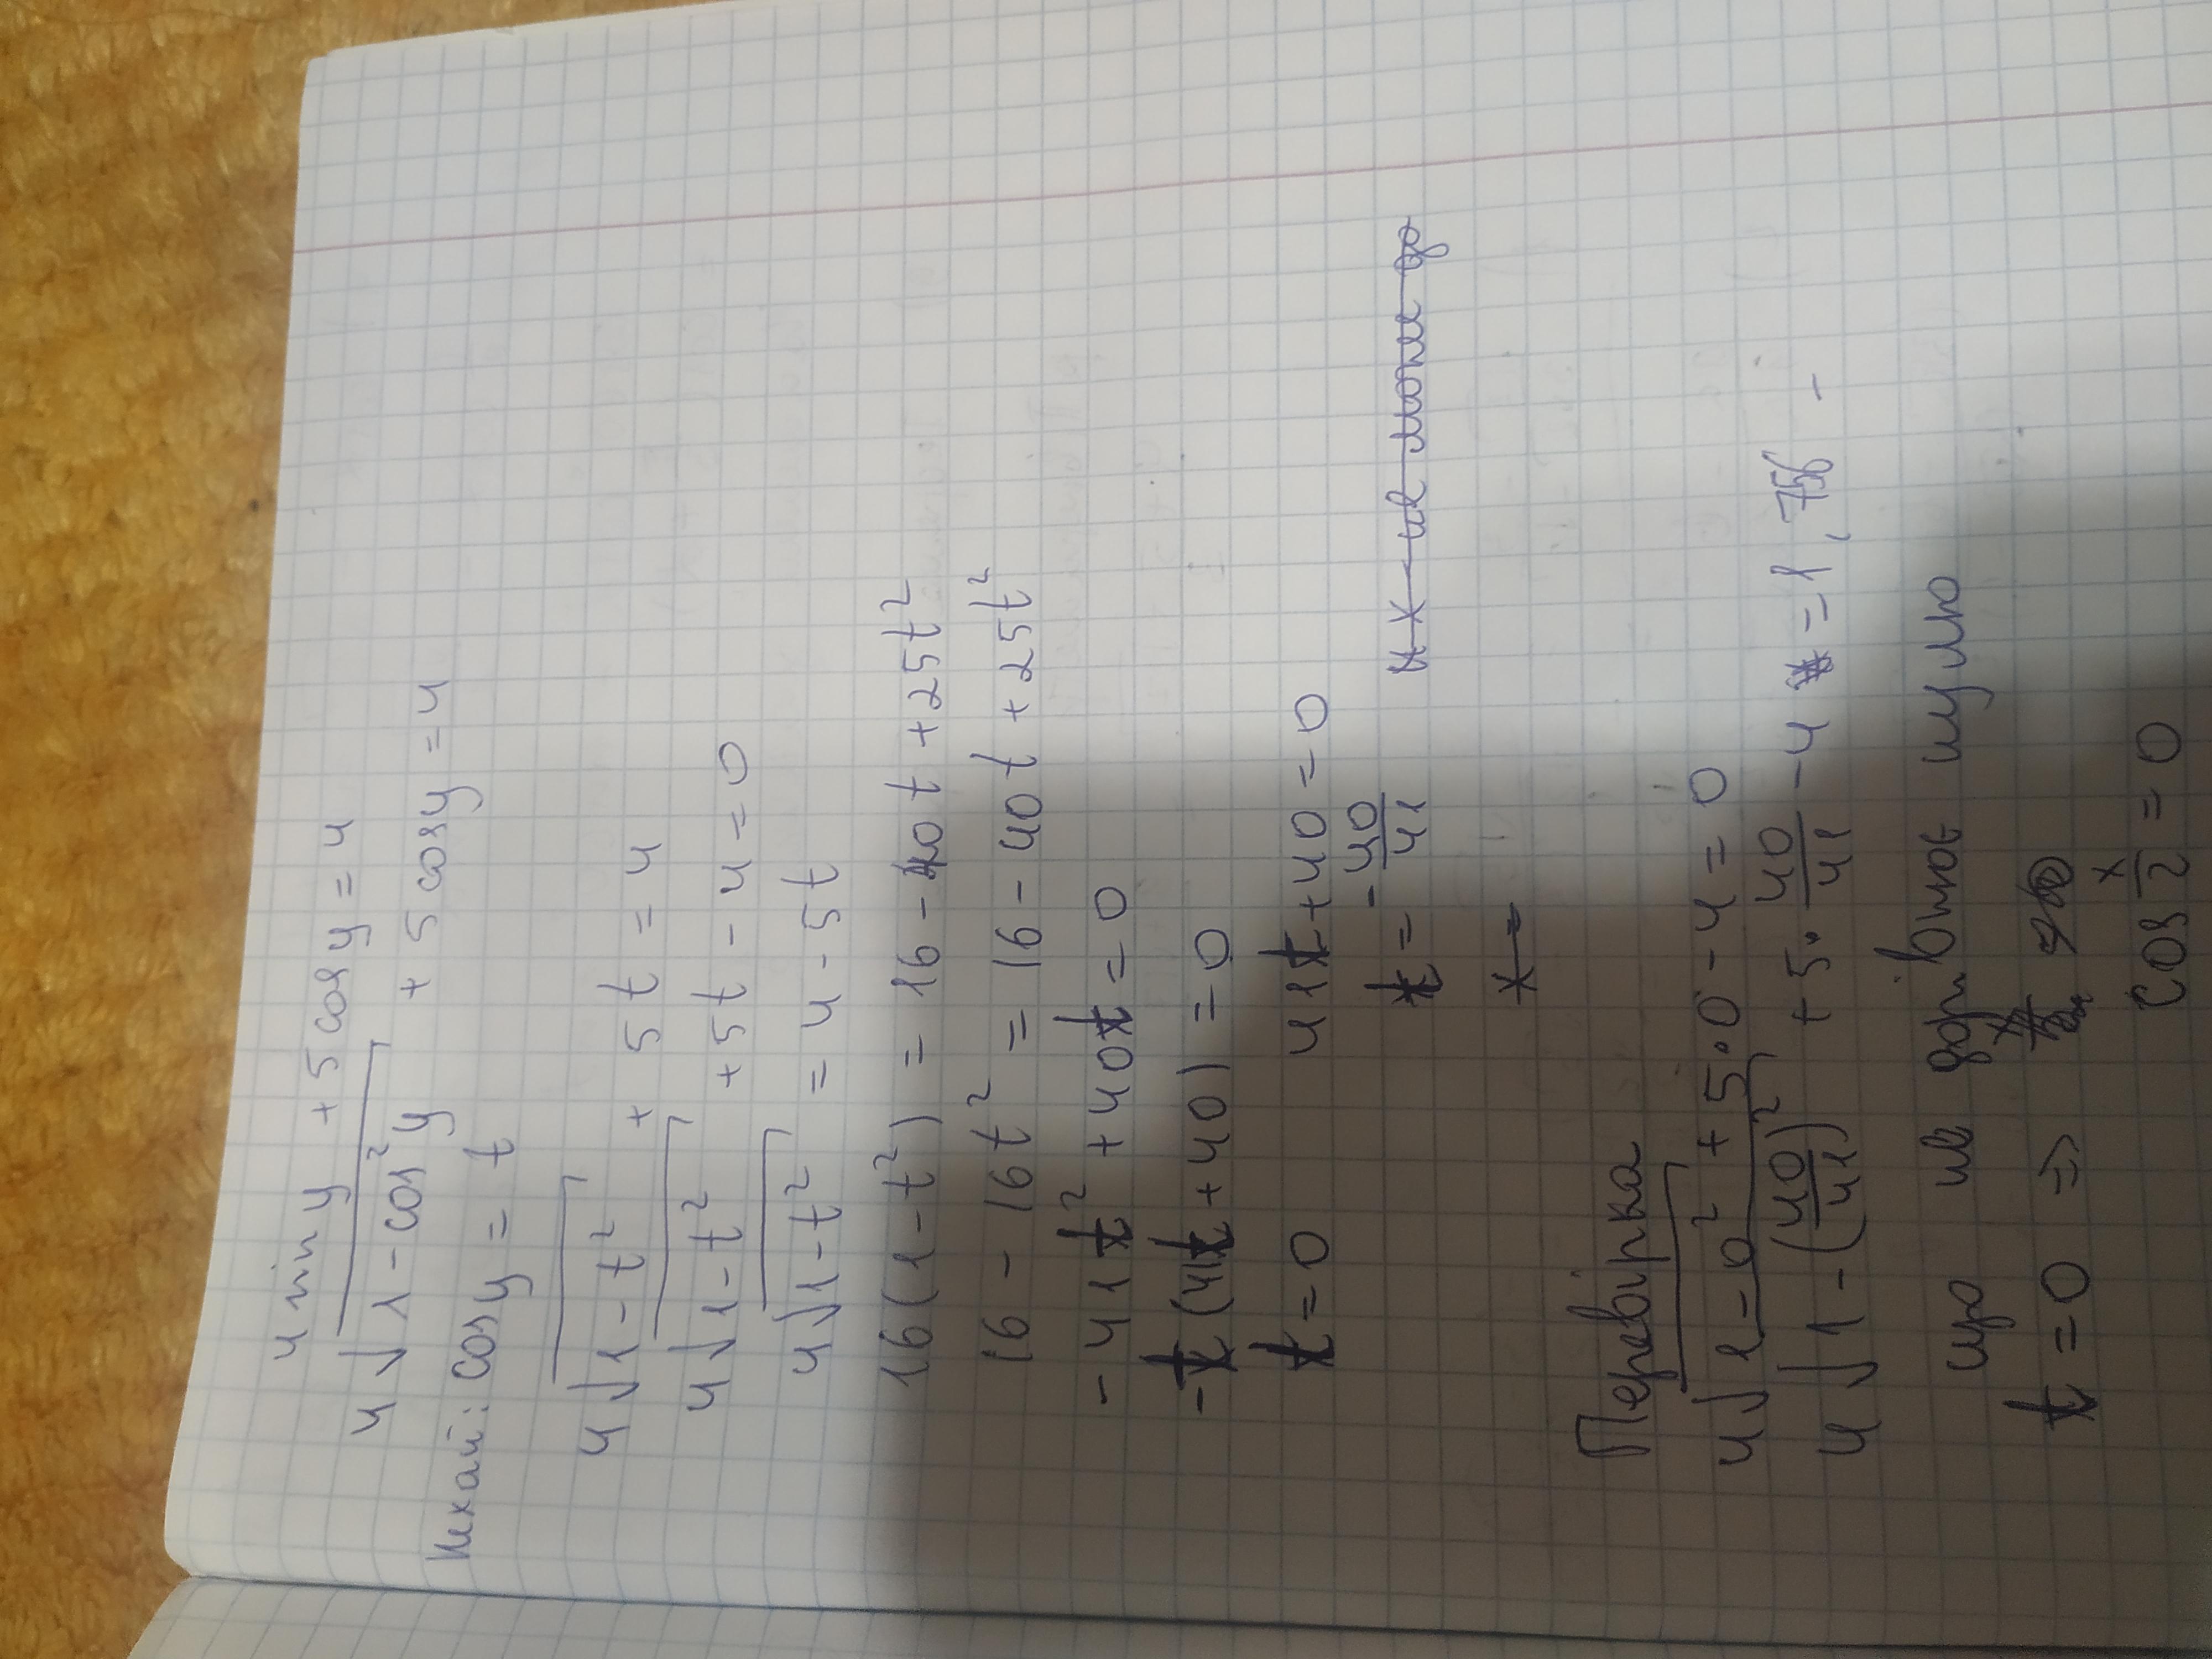 4 sin y + 5 cos y = 4
4√(1 - cos² y) + 5 cos y = 4
Нехай: cos y = t
4√(1 - t²) + 5t = 4
4√(1 - t²) + 5t - 4 = 0
4√(1 - t²) = 4 - 5t
16(1 - t²) = 16 - 40t + 25t²
16 - 16t² = 16 - 40t + 25t²
-41t² + 40t = 0
-t(41t + 40) = 0
t = 0 41t + 40 = 0
t = -40/41 не може до
x =
Перевірка
4√(1 - 0² + 5·0 - 4 = 0
4√(1 - (40/41)² + 5·40/41 - 4 = 1,756 -
що не дорівнює нулю
t = 0 ⇒
cos x/2 = 0